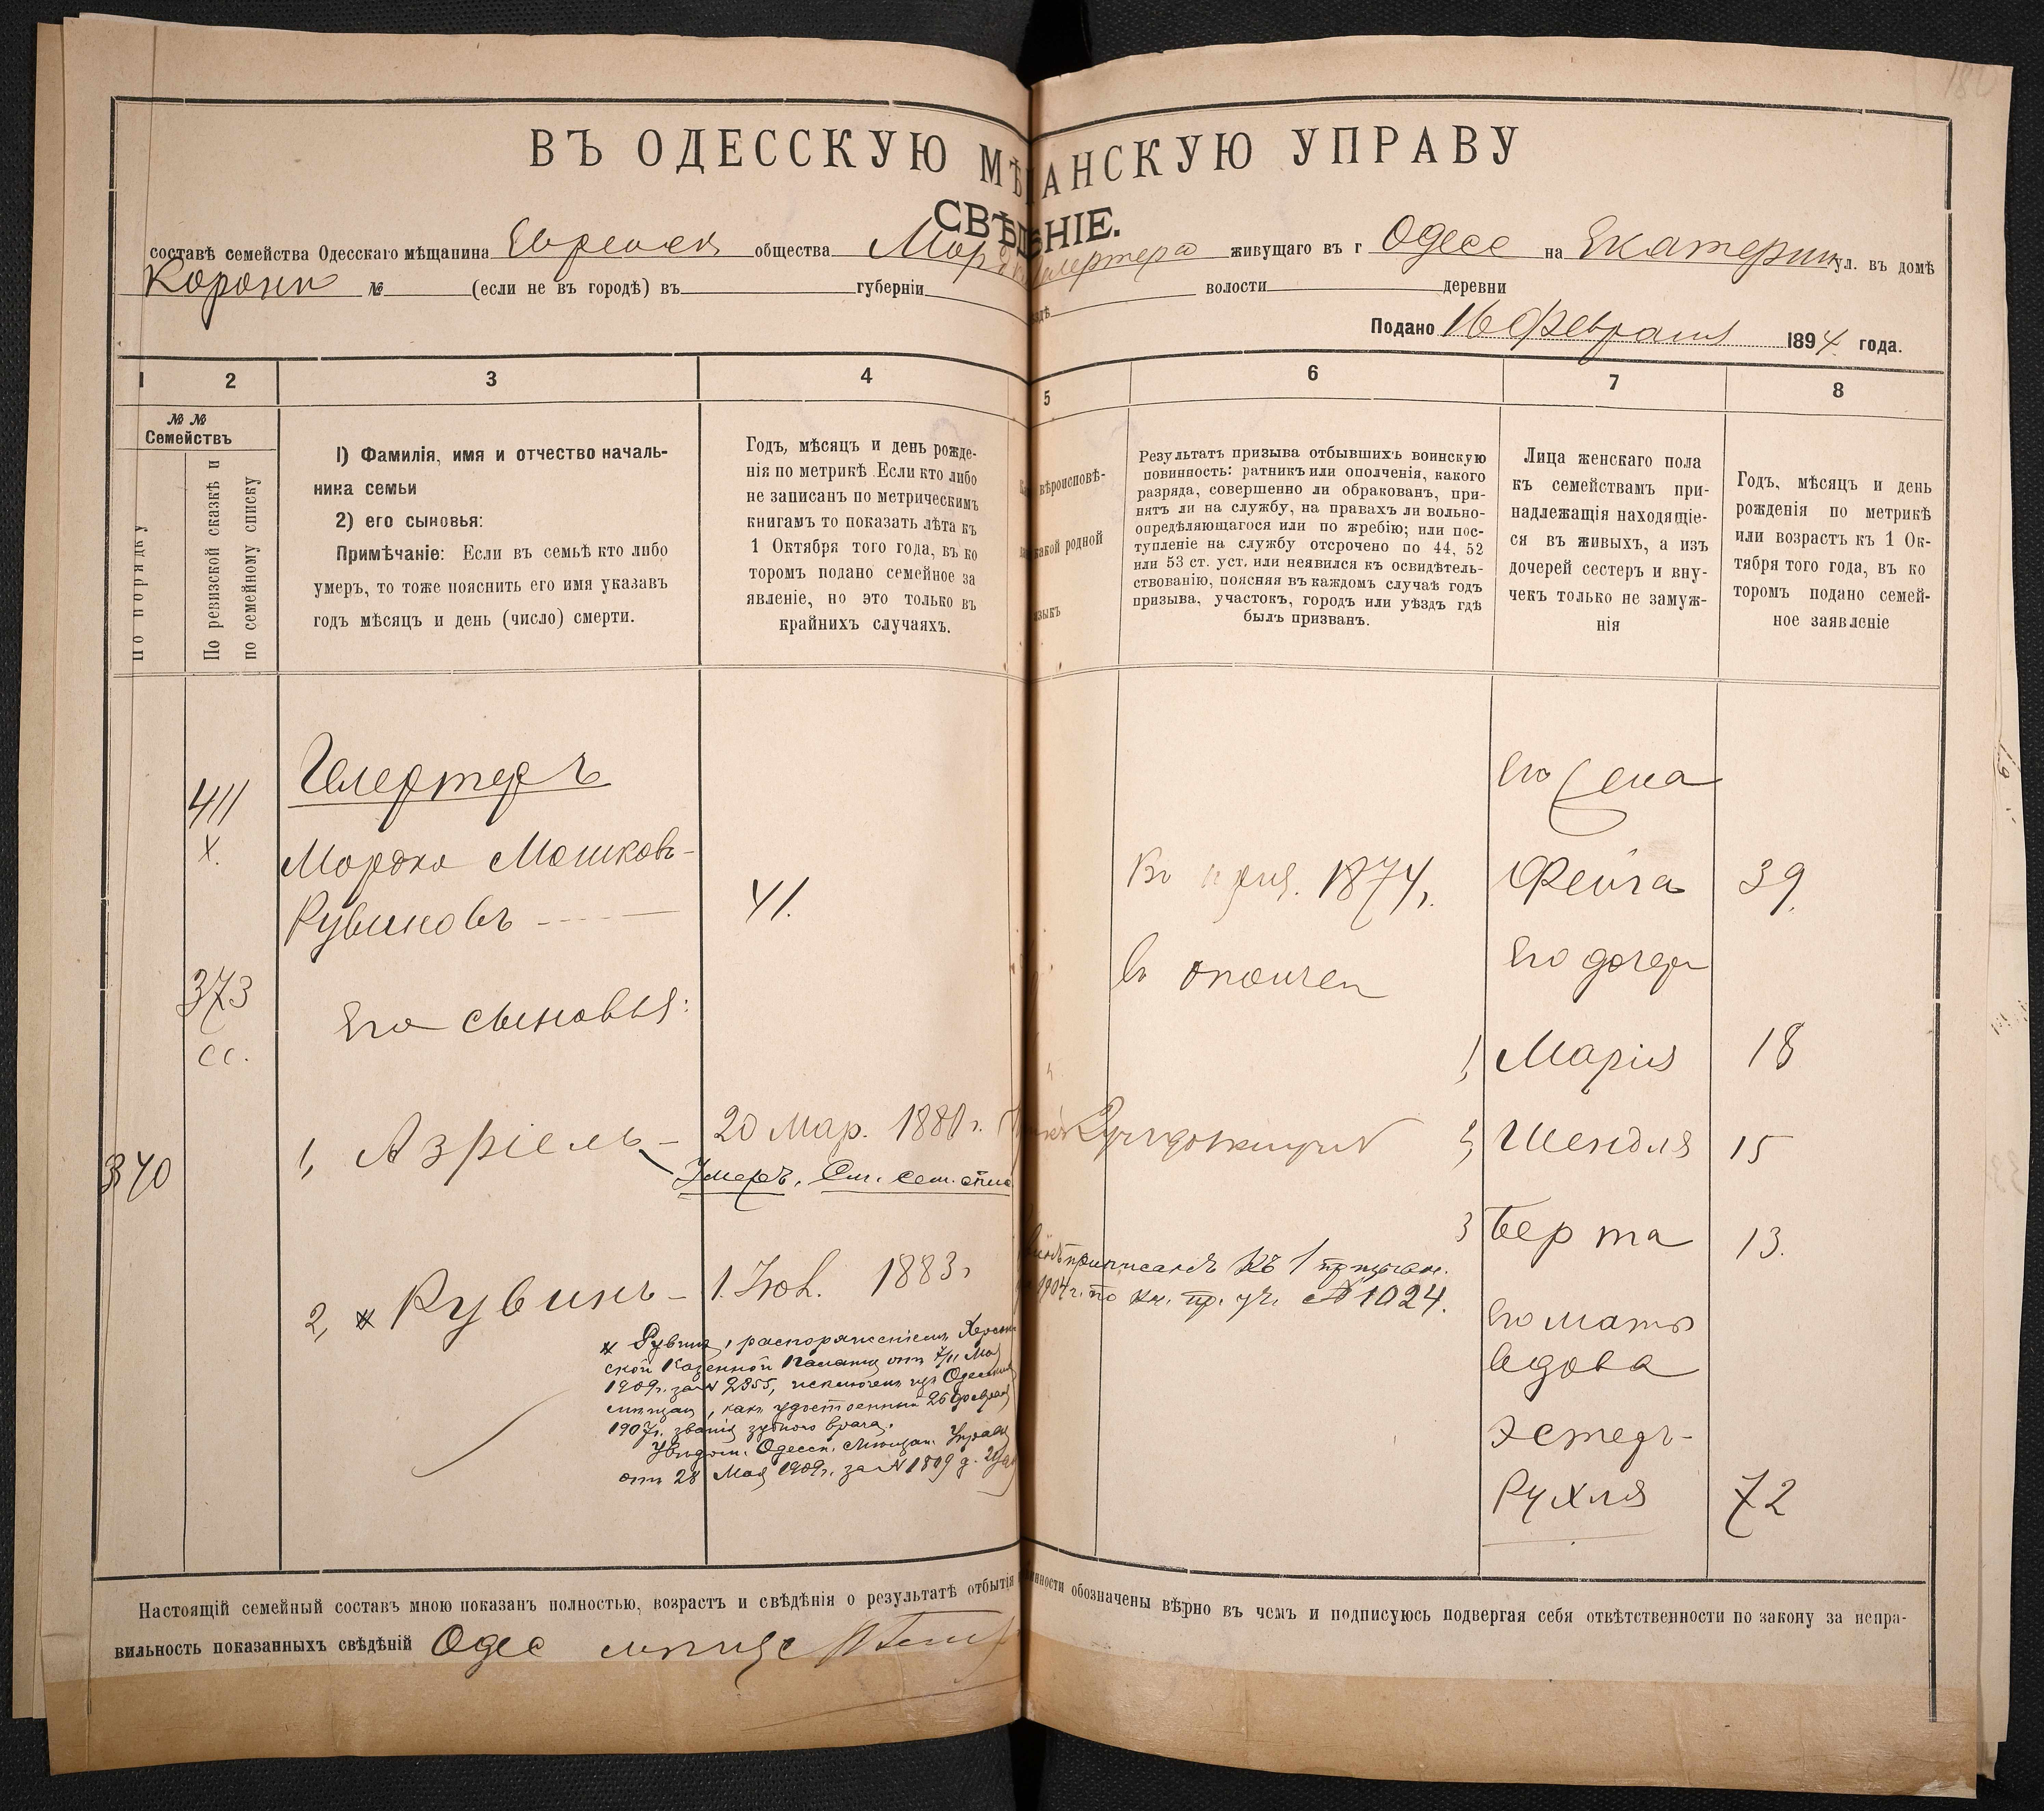 180
ВЪ ОДЕССКУЮ МѢЩАНСКУЮ УПРАВУ
СВѢДѢНІЕ.
составѣ семейства Одесскаго мѣщанина Еврейск общества Мор Гелертера живущаго въ г Одесс на Екатерин ул. въ домѣ
№ (если не въ городѣ) въ губерніи уѣздѣ волости деревни
Подано 16 Февраля 1894 года.
1 2 3 4 5 6 7 8
№ №
Семействъ
по порядку
По ревизской сказкѣ и
по семейному списку
1) Фамилія, имя и отчество началь-
ника семьи
2) его сыновья:
Примѣчаніе: Если въ семьѣ кто либо
умеръ, то тоже пояснить его имя указавъ
годъ мѣсяцъ и день (число) смерти.
Годъ, мѣсяцъ и день рожде-
нія по метрикѣ Если кто либо
не записанъ по метрическимъ
книгамъ то показать лѣта къ
1 Октября того года, въ ко
торомъ подано семейное за
явленіе, но это только въ
крайнихъ случаяхъ.
вѣроисповѣ-
какой родной
языкъ
Результатъ призыва отбывшихъ воинскую
повинность: ратникъ или ополченія, какого
разряда, совершенно ли обракованъ, при-
нятъ ли на службу, на правахъ ли вольно-
опредѣляющагося или по жребію; или пос-
тупленіе на службу отсрочено по 44, 52
или 53 ст. уст. или неявился къ освидѣтель-
ствованію, поясняя въ каждомъ случаѣ годъ
призыва, участокъ, городъ или уѣздъ гдѣ
былъ призванъ.
Лица женскаго пола
къ семействамъ при-
надлежащія находящіе-
ся въ живыхъ, а изъ
дочерей сестеръ и вну-
чекъ только не замуж-
нія
Годъ, мѣсяцъ и день
рожденія по метрикѣ
или возрастъ къ 1 Ок-
тября того года, въ ко
торомъ подано семей-
ное заявленіе
411
х.
Гелертеръ
Его жена
Мордко Мошковъ-
Рувиновъ 41.
Въ приз. 1874г.
Фейга 39.
373
сс.
Его сыновья:
в ополчен
Его дочери
1, Марія 18
370
1, Азріель - 20 Мар. 1880г.
Умеръ. См. сем. спис
2, Шендля 15
3 Берта 13.
2, Рувинъ - 1. Нов. 1883г
приписанъ къ 1 призыв.
1904г. по кн. пр. уч. № 1024.
Рувинъ, распоряженіемъ Херсон
ской Казенной Палаты отъ 7/11 Мая
1909г. за № 2355, исключенъ изъ Одесскихъ
мѣщан, какъ удостоенный 26 февраля
1907г. званія зубного врача.
Увѣдом. Одесск. Мѣщан. Управы
отъ 28 Мая 1909г. за № 1809
Его мать
вдова
Эстеръ-
Рухля 72
Настоящій семейный составъ мною показанъ полностью, возрастъ и свѣдѣнія о результатѣ отбытія повинности обозначены вѣрно въ чемъ и подписуюсь подвергая себя отвѣтственности по закону за непра-
вильность показанныхъ свѣдѣній Одес